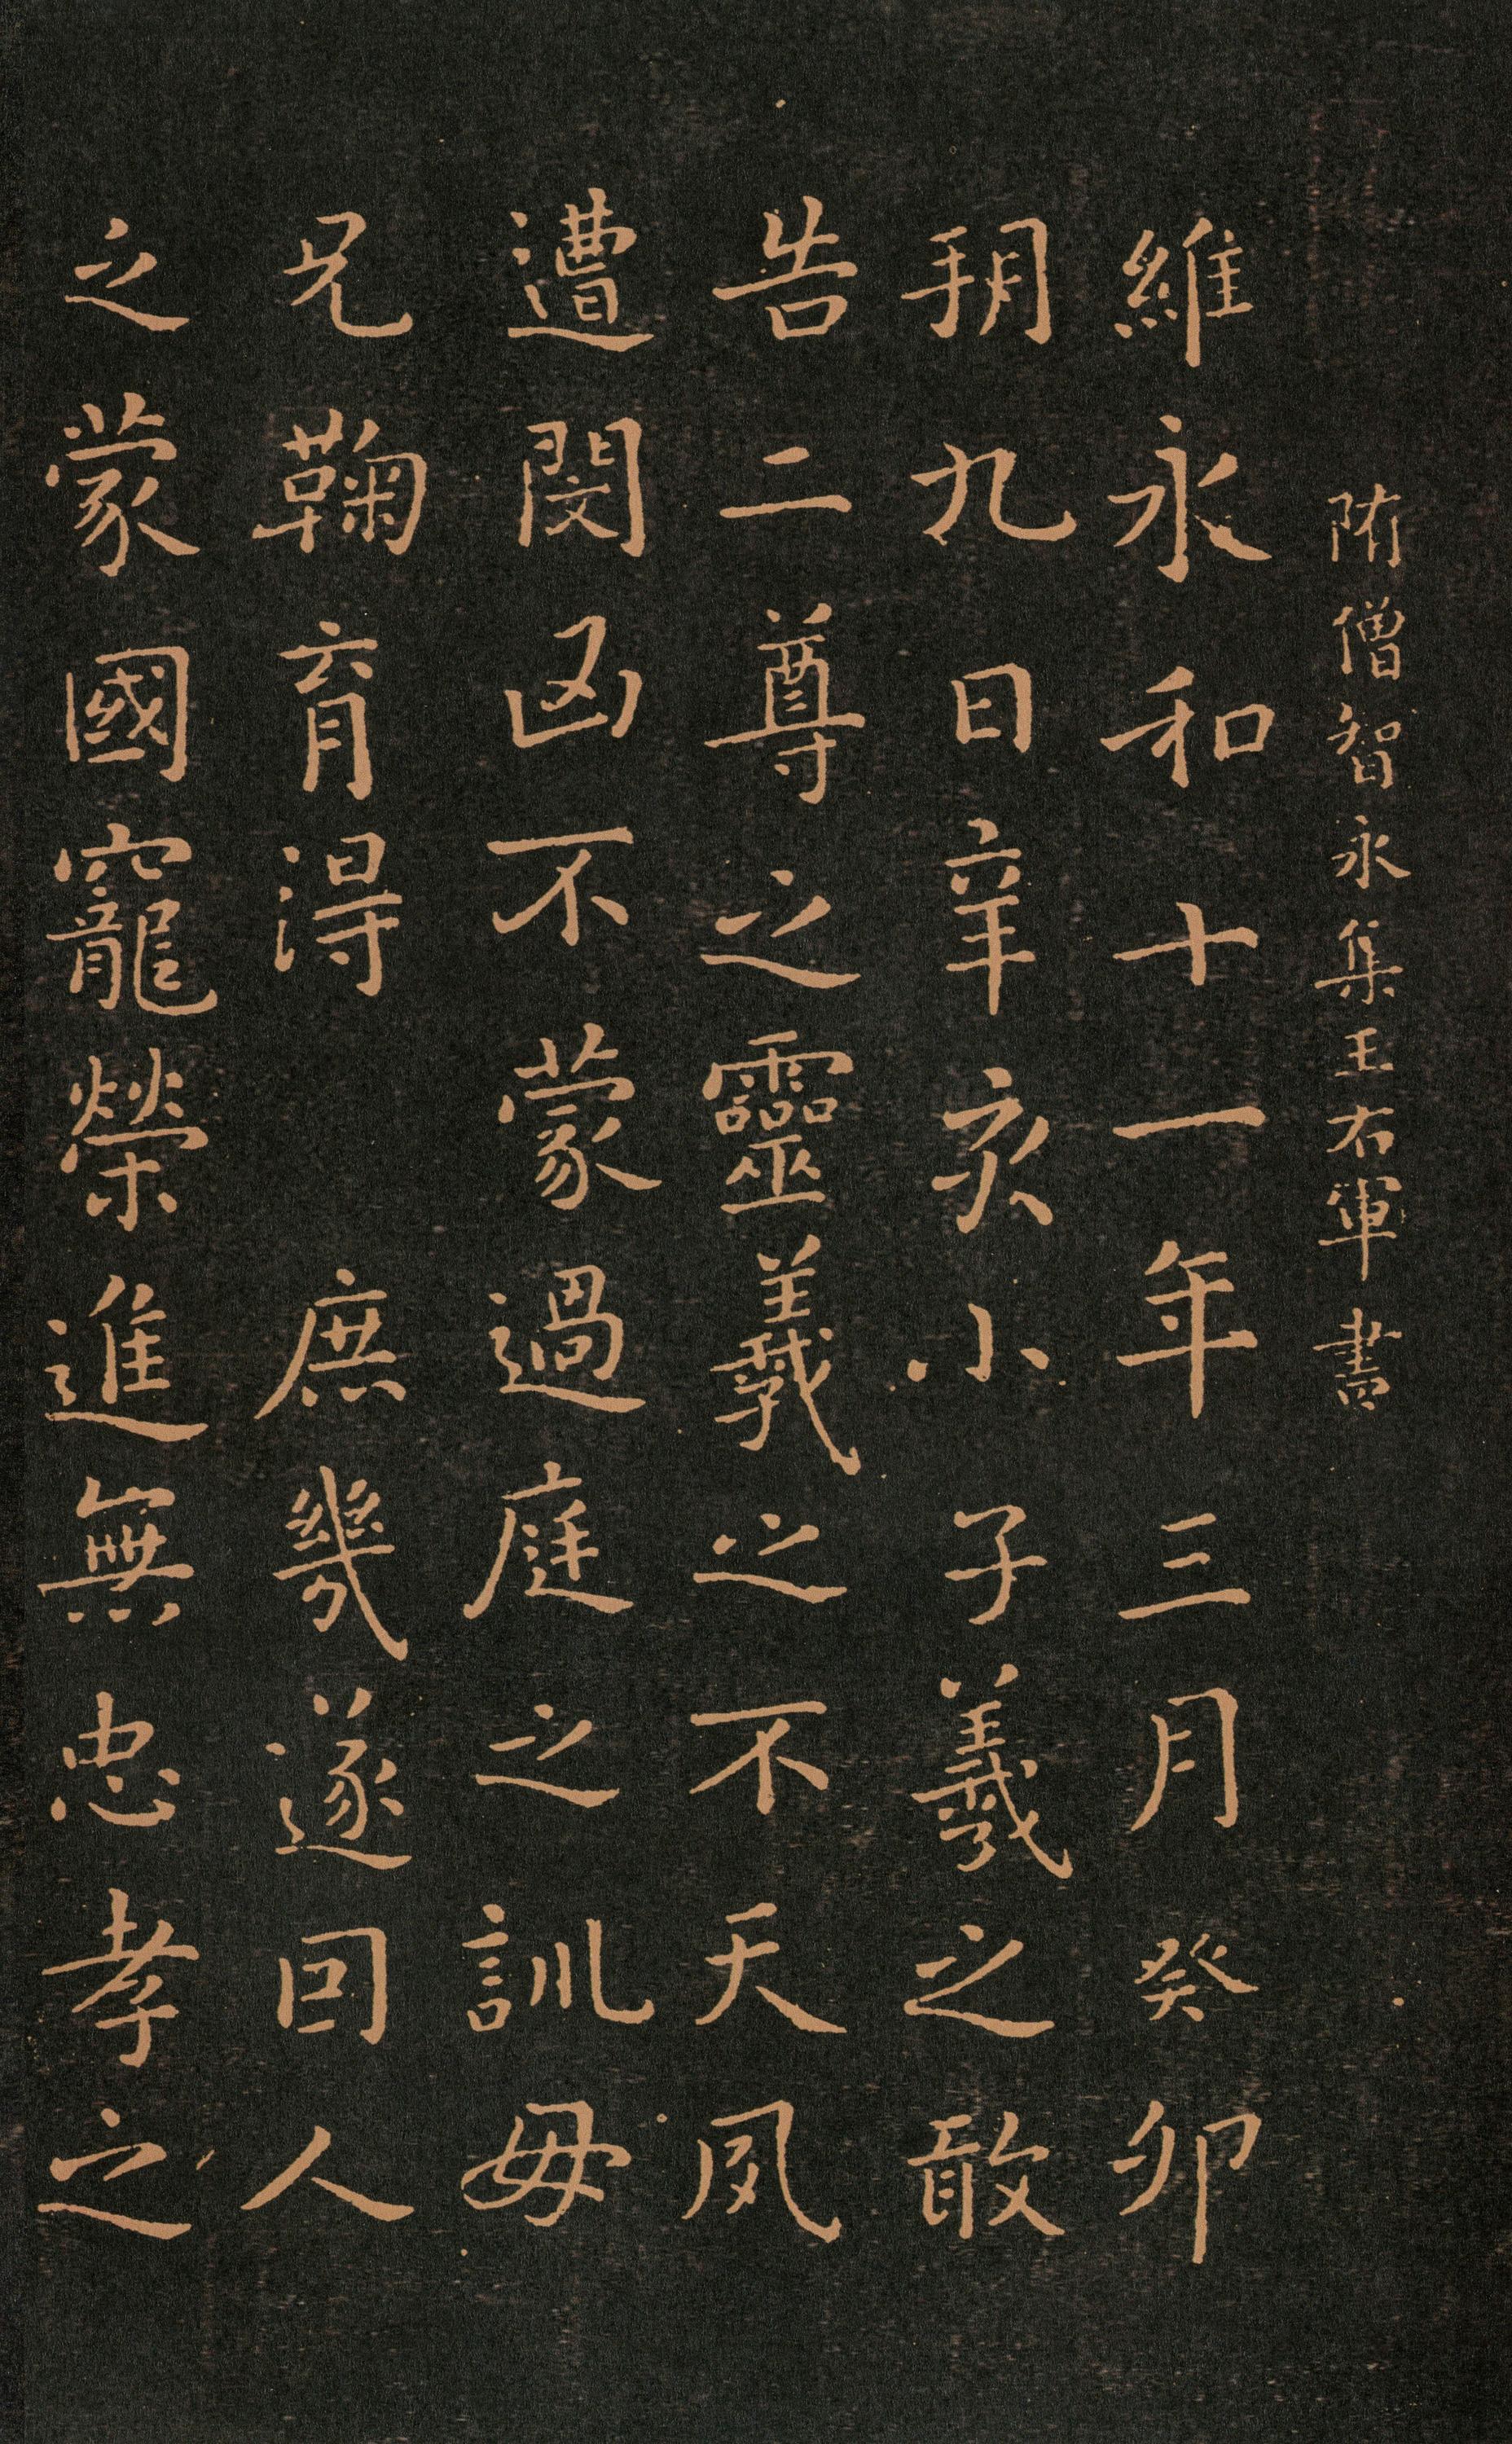 隋僧智永集王右軍書
維永和十一年三月癸卯
朔九日辛亥小子羲之敢
告二尊之靈羲之不天夙
遭閔凶不蒙過庭之訓毋
兄鞠育得庶幾遂因人
之蒙國寵榮進無忠孝之